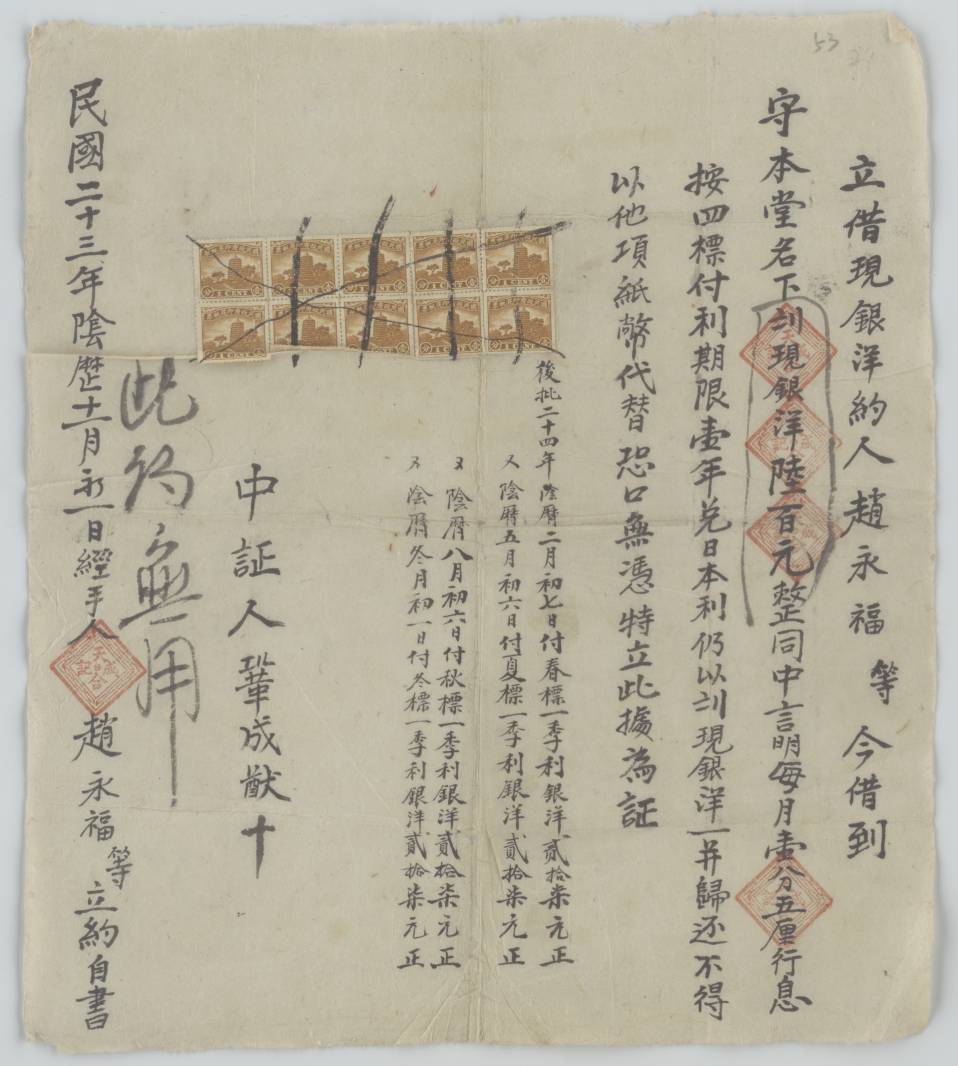 53
立借現銀洋約人趙永福等今借到
守本堂名下訓現銀洋陸百元整同中言明每月壹分五厘行息
按四標付利期限壹年兌日本利仍以訓現銀洋一并歸还不得
以他項紙幣代替恐口無憑特立此據為証
後批二十四年陰曆二月初七日付春標一季利銀洋貳拾柒元正
又陰曆五月初六日付夏標一季利銀洋貳拾柒元正
又陰曆八月初六日付秋標一季利銀洋貳拾柒元正
又陰曆冬月初一日付冬標一季利銀洋貳拾柒元正
中証人鞏成猷十
此約無用
民國二十三年陰歷十一月初一日經手人趙永福等立約自書
天合成記
1 CENT
1 CENT
1 CENT
1 CENT
1 CENT
1 CENT
1 CENT
1 CENT
1 CENT
1 CENT